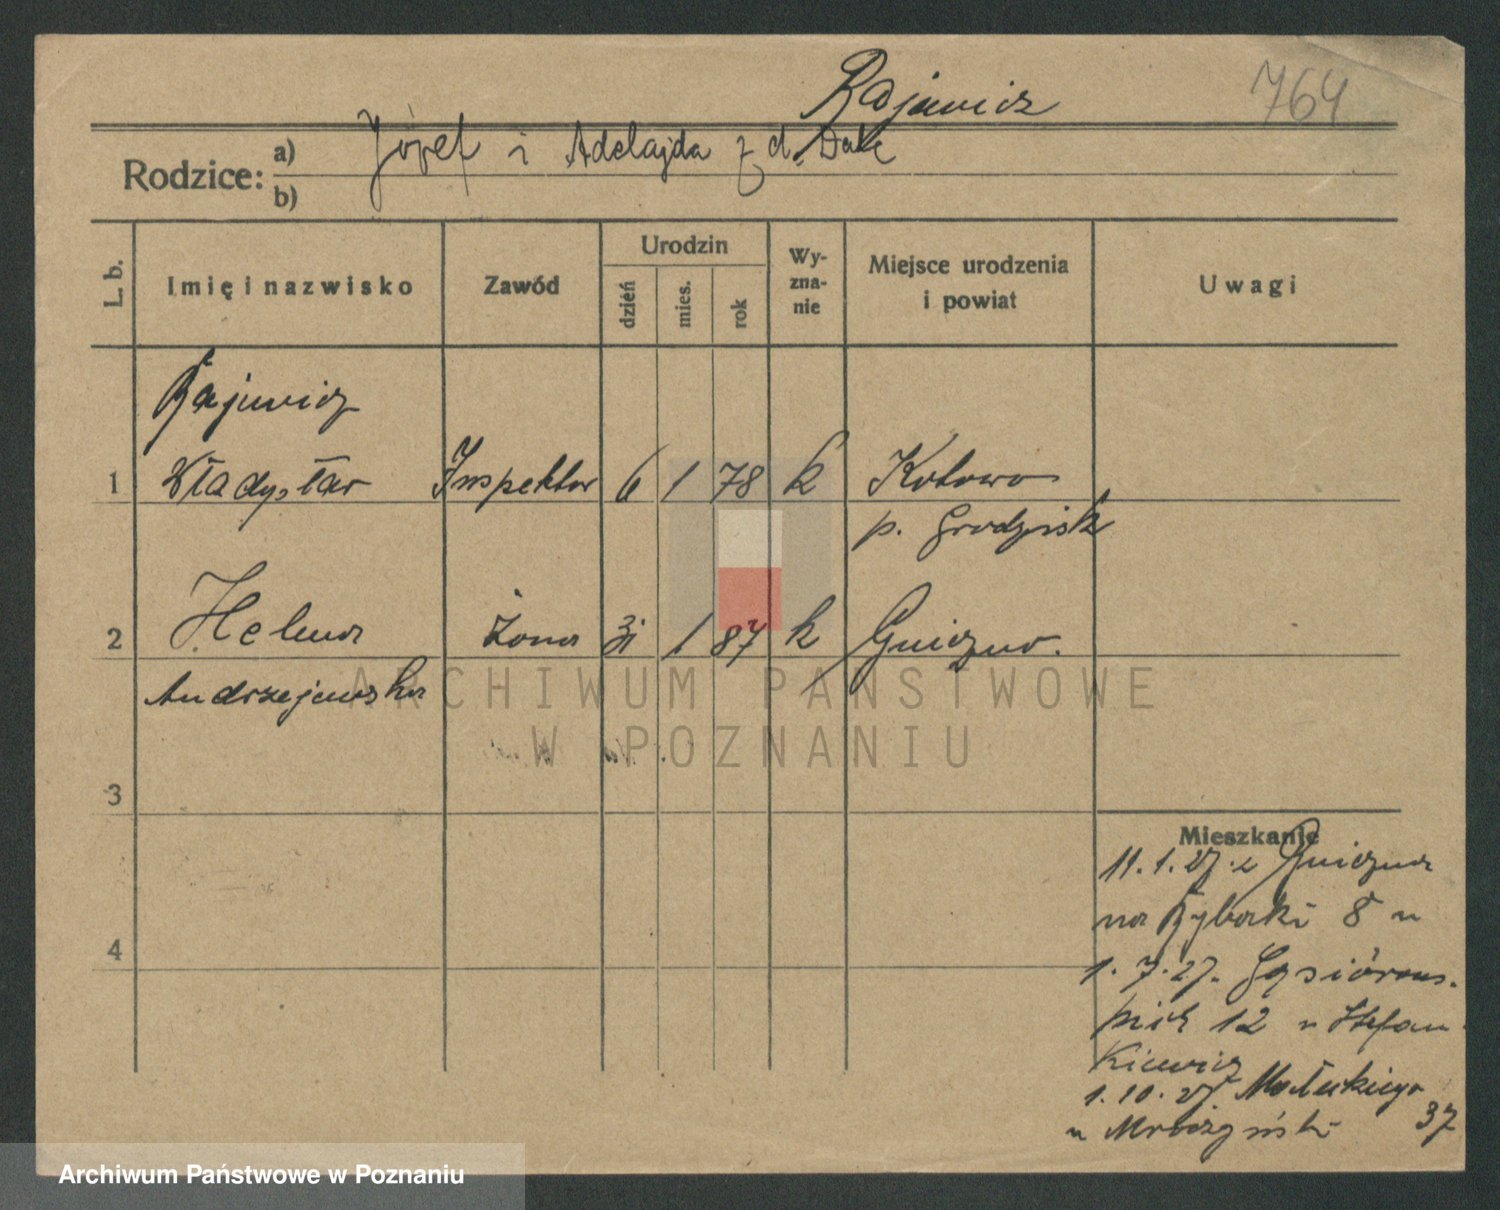 Rajewicz
764
Rodzice:
a) Józef i Adelajda z d.
b)
L. b.
Imię i nazwisko
Zawód
Urodzin
dzień
mies.
rok
Wy-
zna-
nie
Miejsce urodzenia
i powiat
Uwagi
Rajewicz
1 Władysław Inspektor 6 1 78 k Kotowo
p. Grodzisk
2 Helena żona 31 1 87 k Gniezno.
Andrzejewska
3
4
Mieszkanie
11.1.27. z Gniezna
na Rybaki 8 u
1.7.27. Gąsiorows-
kich 12 u Stefan-
kiewicz
1.10.27 Małeckiego
u Mroczyński 37
ARCHIWUM PAŃSTWOWE
W POZNANIU
Archiwum Państwowe w Poznaniu